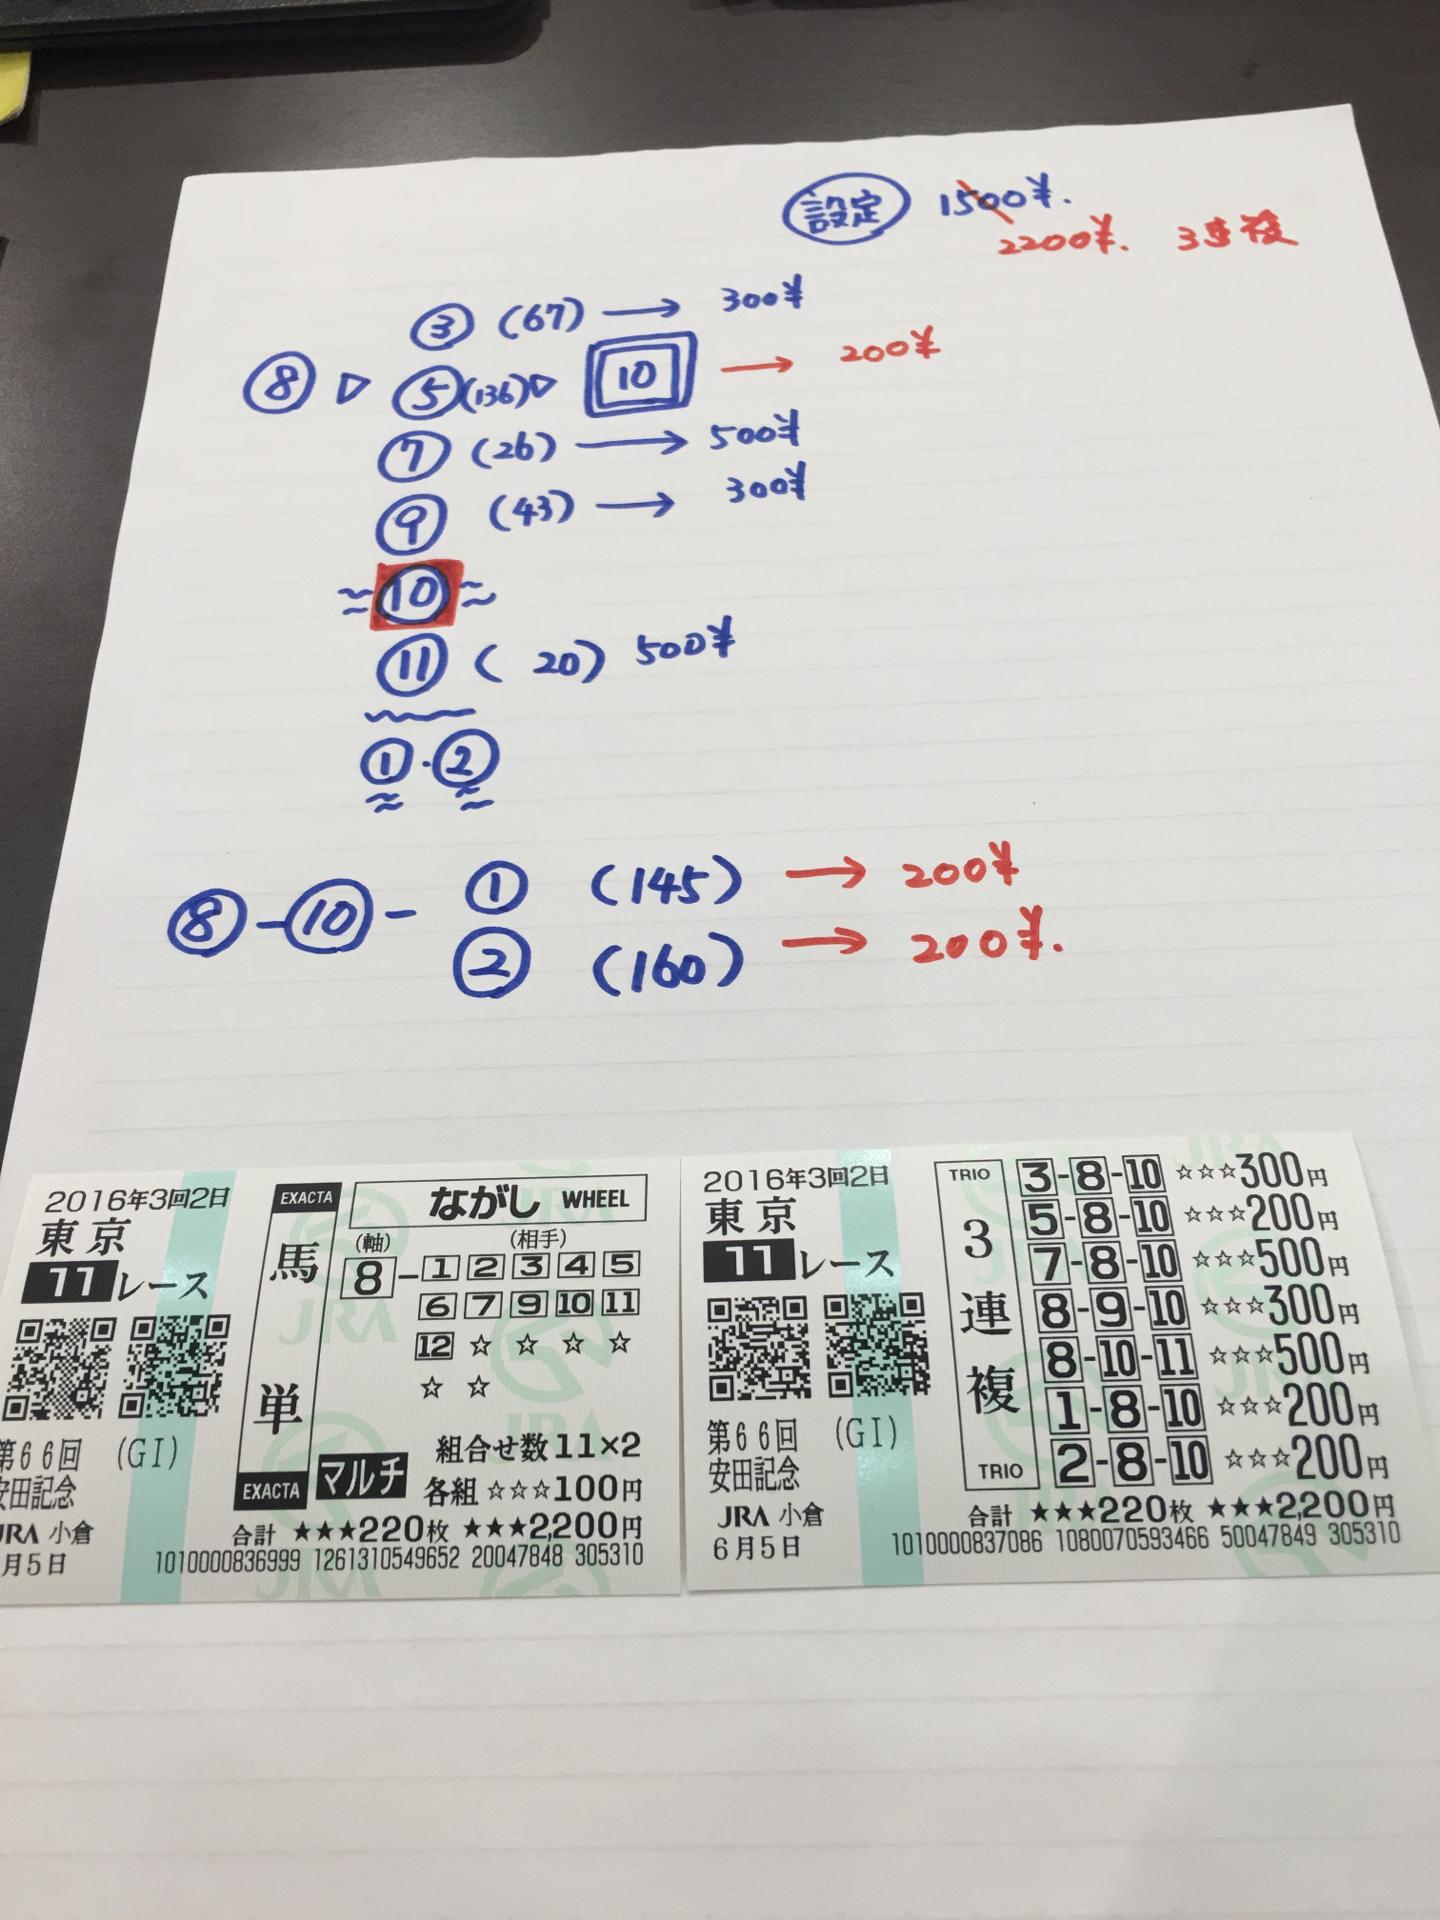 設定 1500¥.
2200¥. 3連複
③ (67) → 300¥
⑧ ▷ ⑤(136)▷ 10 → 200¥
⑦ (26) → 500¥
⑨ (43) → 300¥
⑩
⑪ (20) 500¥
①・②
⑧-⑩- ① (145) → 200¥
② (160) → 200¥.
2016年3回2日
東京
11レース
第66回 (GI)
安田記念
JRA 小倉
月5日
EXACTA
馬単
EXACTA
ながし WHEEL
(軸) (相手)
8-1 2 3 4 5
6 7 9 10 11
12 ☆ ☆ ☆ ☆
☆ ☆
組合せ数 11×2
マルチ 各組 ☆☆☆100円
合計 ★★★220枚 ★★★2,200円
1010000836999 1261310549652 20047848 305310
2016年3回2日
東京
11レース
第66回 (GI)
安田記念
JRA 小倉
6月5日
TRIO
3連複
TRIO
3-8-10 ☆☆☆300円
5-8-10 ☆☆☆200円
7-8-10 ☆☆☆500円
8-9-10 ☆☆☆300円
8-10-11 ☆☆☆500円
1-8-10 ☆☆☆200円
2-8-10 ☆☆☆200円
合計 ★★★220枚 ★★★2,200円
1010000837086 1080070593466 50047849 305310